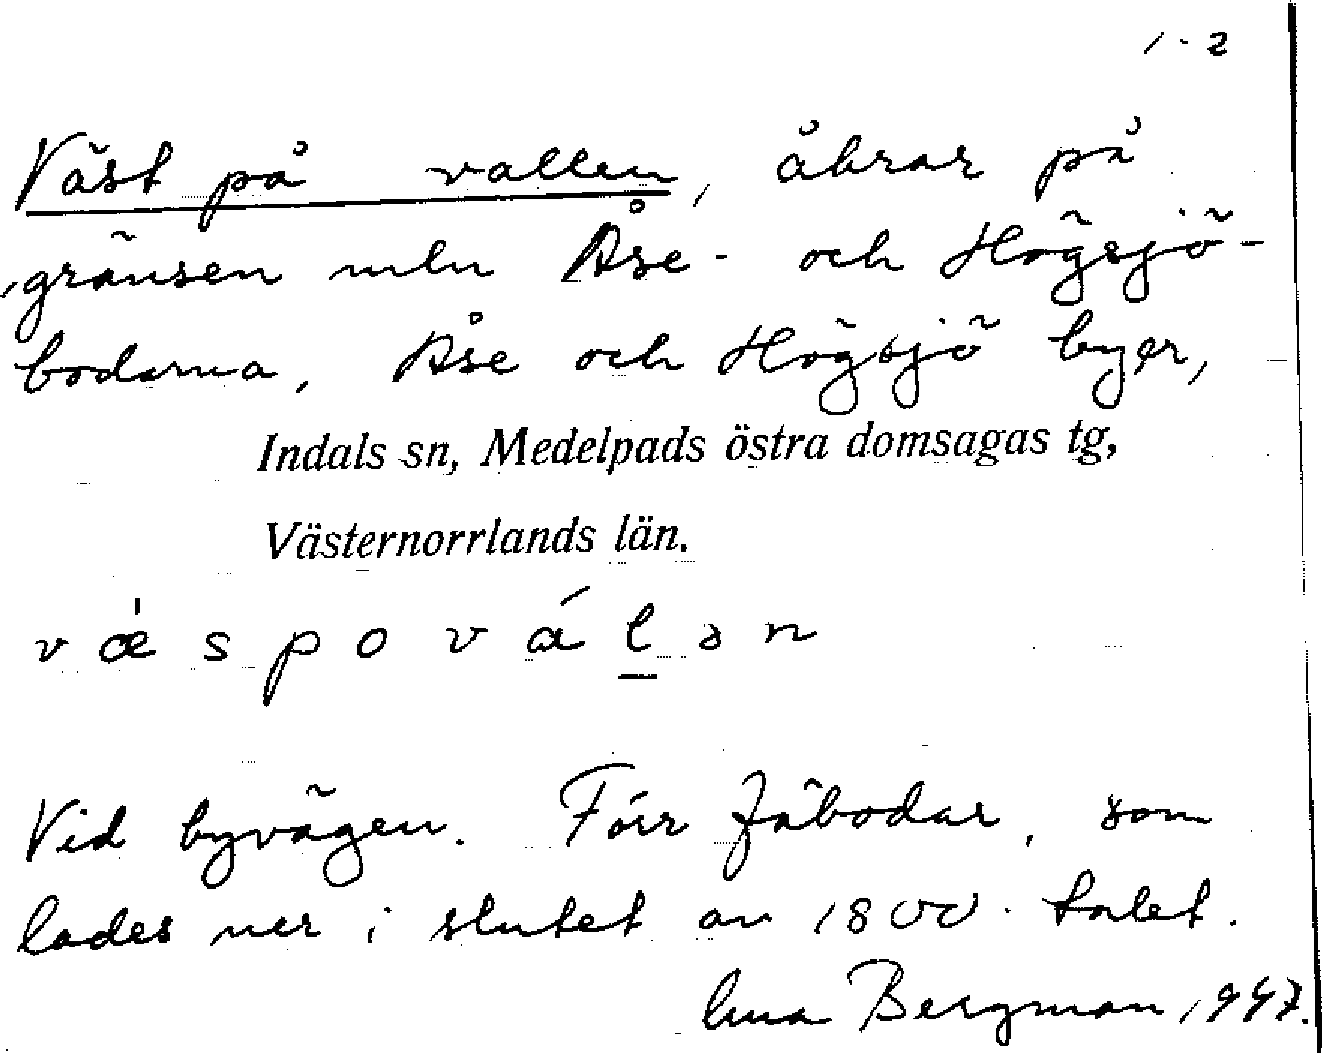 1-2
Väst på vallen, åkrar på
gränsen mln Åse- och Högsjö-
bodarna, Åse och Högsjö byer,
Indals sn, Medelpads östra domsagas tg,
Västernorrlands län.
væ´spová​lən
Vid byvägen. Förr fäbodar, som
lades ner i slutet av 1800-talet.
Bergman 1947.